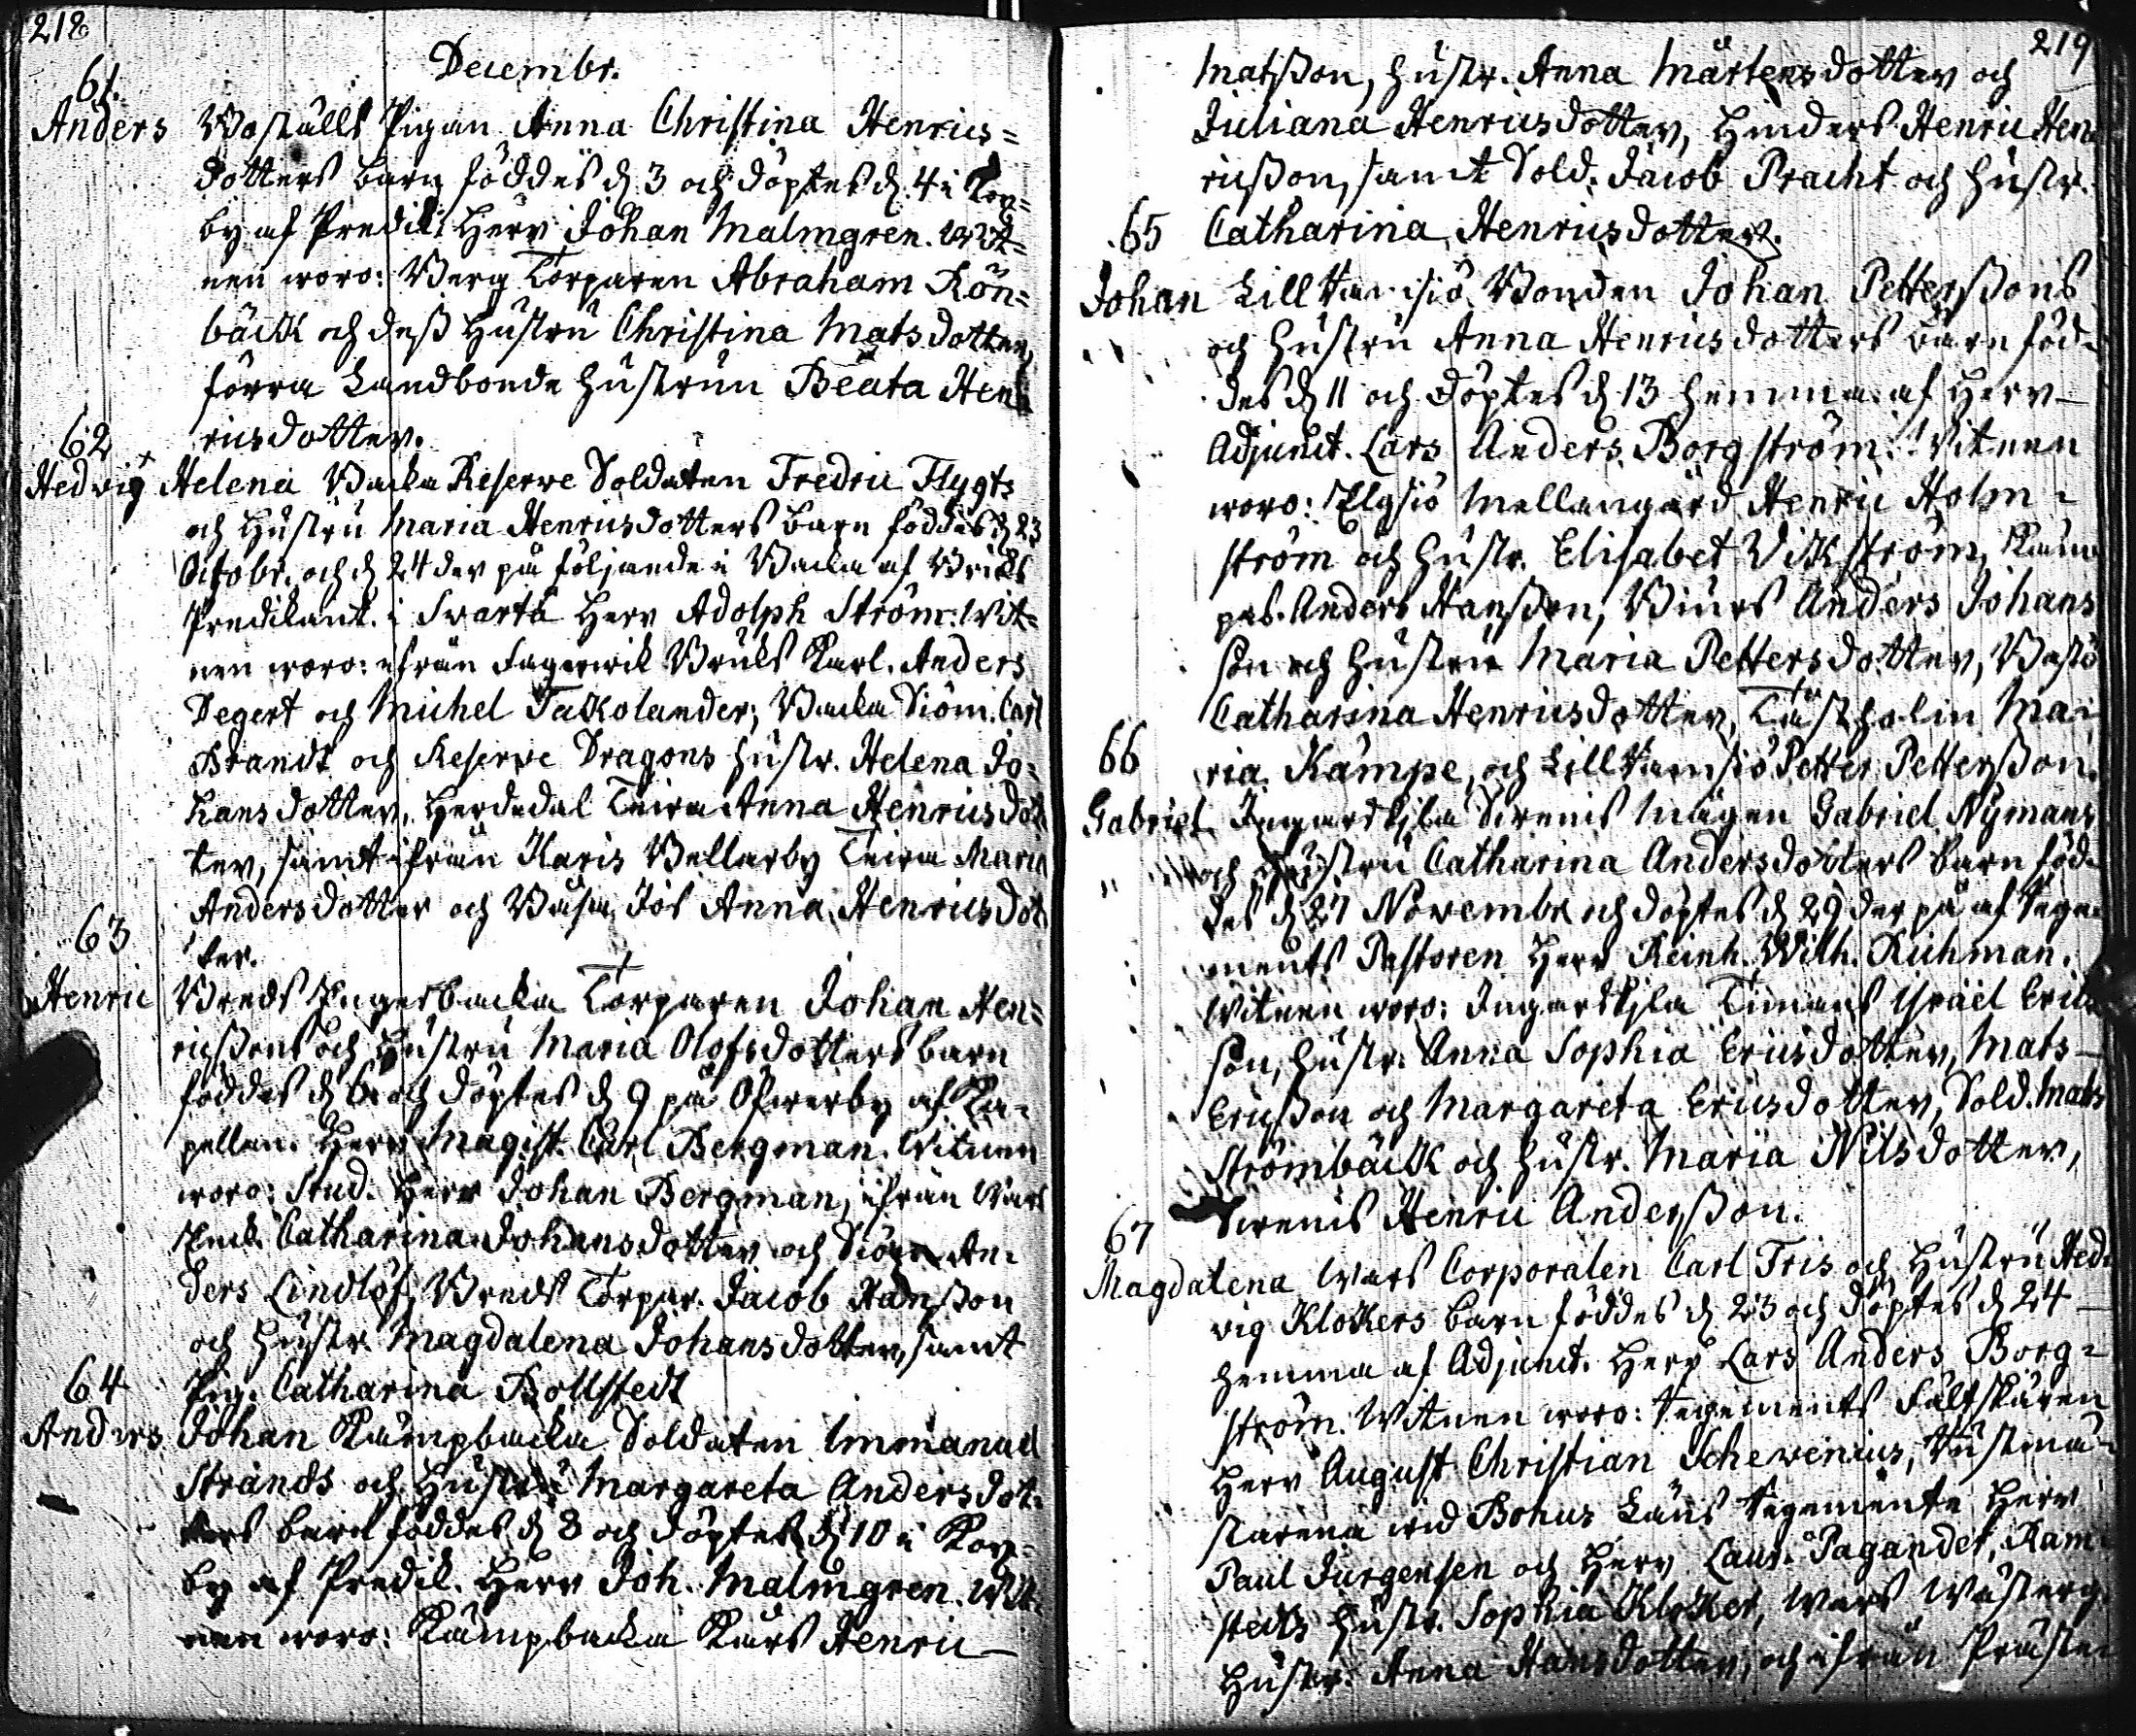 218
Decembr.
61.
Anders Boställs Pigan Anna Christina Henrics=
dotters barn föddes d 3 och döptes d. 4 i Kor=
by af Predik. Herr Johan Malmgren. Wit=
nen woro: Berg Torparen Abraham Rön=
bäck och dess Hustru Christina Matsdotter,
förra Landbonde Hustrun Beata Hen
ricsdotter.
62
Hedvig Helena Backa Reserve Soldaten Fredric Flygts
och Hustru Maria Henricsdotters barn föddes d 23
Octobr. och d 24 der på följande i Backa af Bruks
Predikant. i Svartå Herr Adolph Ström. Wit=
nen woro: ifrån Fagerwik Bruks Karl. Anders
Degert och Michel Takolander, Backa Siöm. Carl
Brandt och Reserve Dragons Hustr. Helena Jo=
hansdotter, Anna Henricsdot
ter, samt ifrån Karis Maria
Andersdotter och Anna Henricsdot
ter.
63
Henric Torparen Johan Hen=
ricssons och Hustru Maria Olofsdotters barn
föddes d 6 och döptes d 9 på Öfwerby af Ka=
pellan. Herr Magist. Carl Bergman. Witnen
woro: Stud. Herr Johan Bergman, ifrån
Catharina Johansdotter och Siöm An=
ders Lindlöf, Torpar. Jacob Hansson
och Hustr. Magdalena Johansdotter, samt
Pig. Catharina Bollstedt
64
Anders Johan Kämpbacka Soldaten Immanuel
Strands och Hustru Margareta Andersdot=
ters barn föddes d 8 och döptes d 10 i Kor=
by af Predik. Herr Joh. Malmgren. Wit=
nen woro: Kämpbacka Henric
219
Matsson, Hustr. Anna Mårtensdotter och
Juliana Henricsdotter, Henric Hen
ricsson, samt Sold. Jacob Pracht och Hustr.
Catharina Henricsdotter.
65
Johan Bonden Johan Petterssons
och Hustru Anna Henricsdotters barn föd=
des d 11 och döptes d 13 hemma af Herr
Adjunct. Lars Anders Borgström. Witnen
woro: Elgsiö Mellangård Henric Holm=
ström och Hustr. Elisabet Vikström,
Anders Hansson, Anders Johans
son och Hustru Maria Pettersdotter,
Catharina Henricsdotter, Ma=
ria Kämpe, och Petter Pettersson.
66
Gabriel Ingardskila Svenis Mågen Gabriel Nymans
och Hustru Catharina Andersdotters barn föd=
des d 27 Novembr. och döptes d 29 der på af Rege=
ments Pastoren Herr Reinh. Wilh. Richman.
Witnen woro: Ingardskila Timans Israel Erics
son, Hustr. Anna Sophia Ericsdotter, Mats
Ericsson och Margareta Ericsdotter, Sold. Mats
Strömbäck och Hustr. Maria Nilsdotter,
Svenis Henric Andersson.
67
Magdalena Wars Corporalen Carl Fris och Hustru Hed=
vig Klokers barn föddes d 23 och döptes d 24
hemma af Adjunct. Herr Lars Anders Borg=
ström. Witnen woro: Regements Fältskären
Herr August Christian Schewenius, Rustmä=
starena wid Bohus Läns Regemente Herr
Paul Jurgensen och Herr Laur. Pagander, Ram
stedts Hustr. Sophia Kloker, Wars
Hustr. Anna Hansdotter, och ifrån